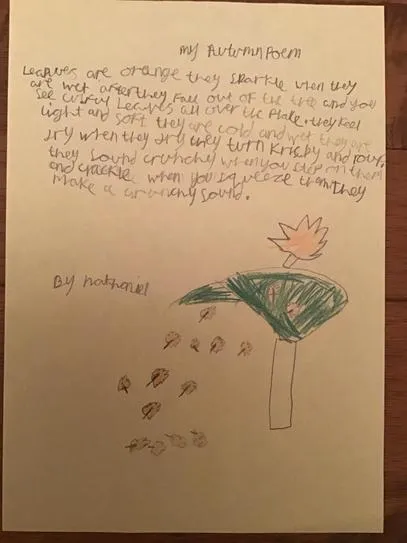 my Autumn Poem
Leaves are orange they sparkle when they
are wet after they fall out of the tree and you
see curvy Leaves all over the Plate. they feel
light and soft they are cold and wet they are
dry when they dry they turn krisby and rouf,
they sound crunchy when you step on them
and crackle when you squeeze them they
make a crunchy sound.
By nathaniel